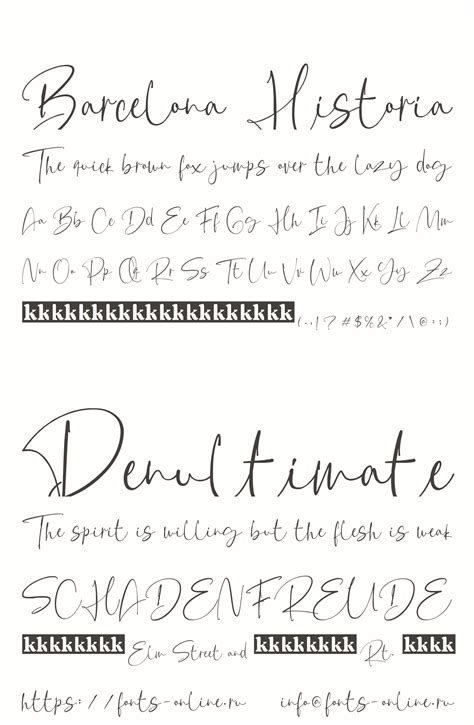 Barcelona Historia
The quick brown fox jumps over the lazy dog
Aa Bb Cc Dd Ee Ff Gg Hh Ii Jj Kk Ll Mm
Nn Oo Pp Qq Rr Ss Tt Uu Vv Ww Xx Yy Zz
kkkkkkkkkkkkkkkkkkkk (.,!?#$%&*/\@:;)
Denultimate
The spirit is willing but the flesh is weak
SCHADENFREUDE
kkkkkkkk Elm Street and kkkkkkkk Rt. kkkk
https://fonts-online.ru info@fonts-online.ru